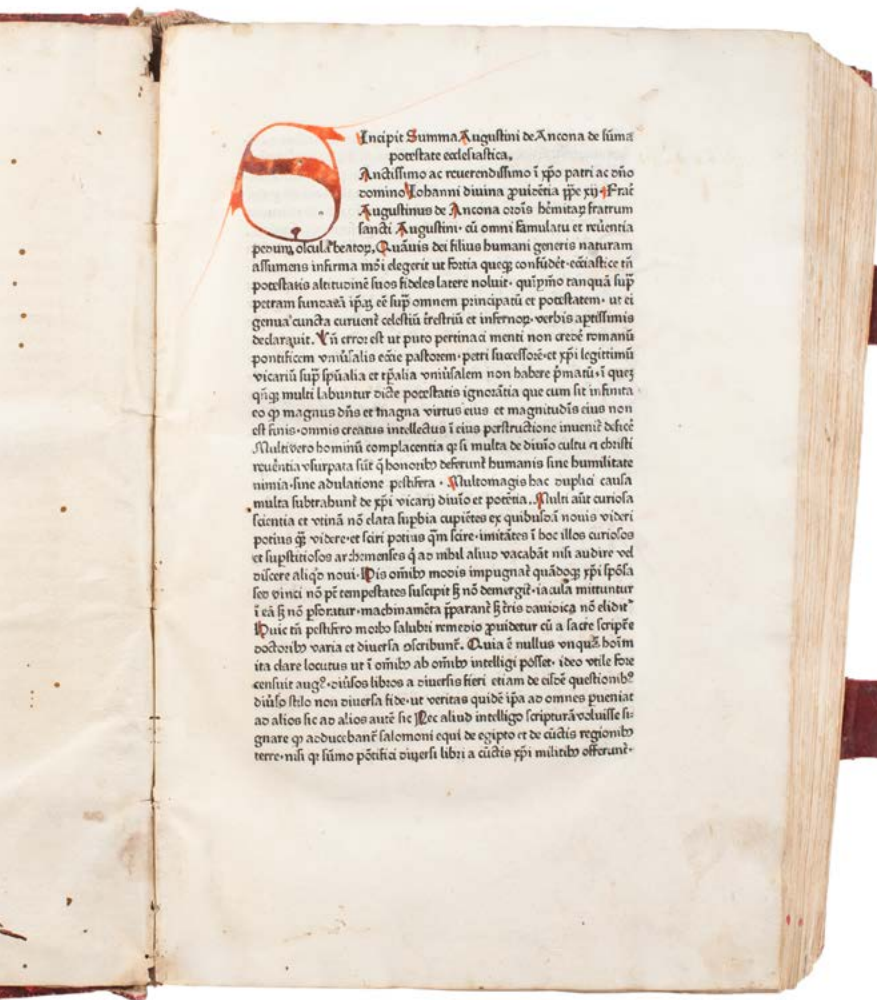 Incipit Summa Augustini de Ancona de sūma
potestate ecclesiastica.
SAnctissimo ac reuerendissimo ī xp̄o patri ac dn̄o
domino Iohanni diuina ꝓuidētia pp̄e xij Frat̄
Augustinus de Ancona ordīs hēmitaꝝ fratrum
sancti Augustini· cū omni famulatu et reuētia
pedum oscula beatoꝝ. Quāuis dei filius humani generis naturam
assumens infirma mōi elegerit ut fortia queqꝫ confūdēt· eccīastice tn̄
potestatis altitudinē suos fideles latere noluit· quīpīmo tanquā sup̄
petram fundatā ip̄aꝫ eē sup̄ omnem principatū et potestatem· ut ei
genua cuncta curuent̄ celestiū t̄restriū et infernoꝝ· verbis aptissimis
declarauit. Vn̄ error est ut puto pertinaci menti non credē romanū
pontificem vniūsalis ecc̄ie pastorem· petri successorē· et xp̄i legittimū
vicariū sup̄ spūalia et tp̄alia vniūsalem non habere p̄matū· ī queꝫ
qn̄qꝫ multi labuntur dicte potestatis ignorātia que cum sit infinita
eo ꝙ magnus dn̄s et magna virtus eius et magnitudīs eius non
est finis· omnis creatus intellectus ī eius perstructione inuenit̄ deficē
Multi vero hominū complacentia qr̄ si multa de diuīo cultu ⁊ christi
reuētia vsurpata sūt q̄ honoribꝫ deferunt̄ humanis siue humilitate
nimia· siue adulatione pestifera · Multomagis hac duplici causa
multa subtrahunt de xp̄i vicarij diuīo et potētia. Multi aūt curiosa
scientia et vtinā nō elata supbia cupiētes ex quibusdā nouis videri
potius qꝫ̄ videre· et sciri potius qm̄ scire· imitātes ī hoc illos curiosos
et supstitiosos athenienses q̄ ad nihil aliud vacabāt nisi audire vel
discere aliqd noui· His om̄ibꝫ modis impugnat̄ quādoqꝫ xp̄i spōsa
sed vinci nō pōt̄ tempestates suscipit sꝫ nō demergit̄· iacula mittuntur
ī eā sꝫ nō pforatur· machinamēta pparant̄ sꝫ t̄ris dauidica nō elidit᷑
Huic tn̄ pestifero morbo salubri remedio ꝓuidetur cū a sacre script̄e
doctoribꝫ varia et diuersa ꝯscribunt̄. Quia ē nullus vnquā hoīm
ita clare locutus ut ī om̄ibꝫ ab om̄ibꝫ intelligi posset· ideo vtile fore
censuit augꝰ· diūsos libros a diuersis fieri etiam de eisdē questionibꝫ
diūso stilo non diuersa fide· ut veritas quidē ip̄a ad omnes pueniat
ad alios sic ad alios autē sic Nec aliud intelligo scripturā voluisse si⸗
gnare ꝙ adducebant̄ salomoni equi de egipto et de cūctis regionibꝫ
terre· nisi qr̄ sūmo pōtifici diuersi libri a cūctis xp̄i militibꝫ offerunt̄·